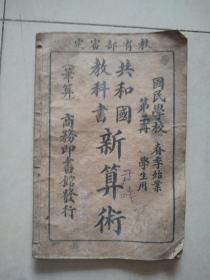 教育部審定
國民學校
春季始業
學生用
第五冊
共和國
教科書
新算術
筆算
商務印書館發行